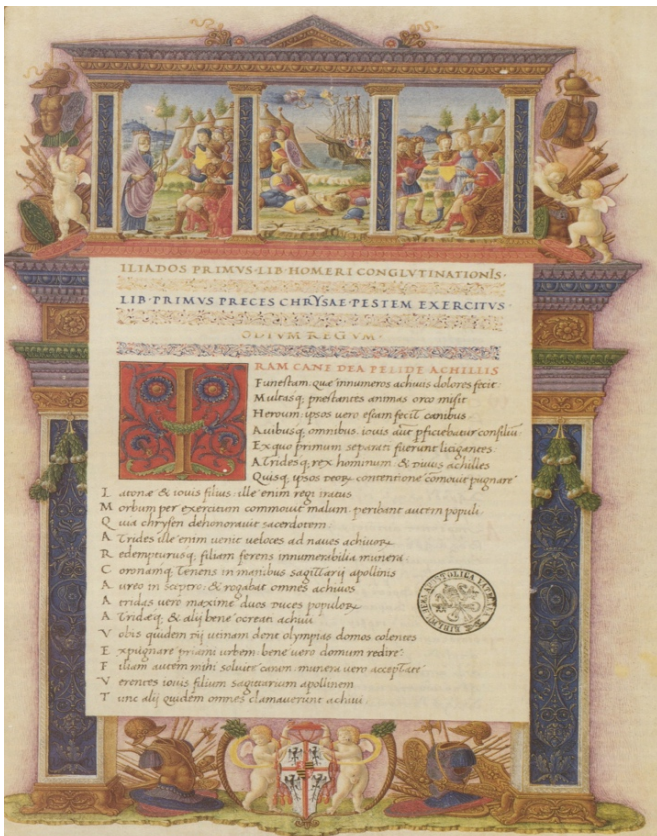 ILIADOS PRIMVS·LIB·HOMERI CONGLVTINATIONIS·
LIB·PRIMVS PRECES CHRYSAE·PESTEM EXERCITVS·
ODIVM REGVM·
IRAM CANE DEA PELIDE ACHILLIS
Funestam, quæ innumeros achiuis dolores fecit
Multasq; prestantes animas orco misit
Heroum: ipsos uero escam fecit canibus
Auibusq; omnibus: iouis aũt pficiebatur consiliũ
Ex quo primum separati fuerunt litigantes
Atridesq; rex hominum: & diuus achilles
Quisq; ipsos deoꝝ contentione comouit pugnare
Latonæ & iouis filius: ille enim regi iratus
Morbum per exercitum commouit malum: peribant autem populi
Quia chrysen dehonorauit sacerdotem
Atrides ille enim uenit ueloces ad naues achiuoꝝ
Redempturusq; filiam ferens innumerabilia munera
Coronamq; tenens in manibus sagittarij apollinis
Aureo in sceptro: & rogabat omnes achiuos
Atridas uero maxime duos duces populoꝝ
Atridæq; & alij bene ocreati achiui
Vobis quidem dij utinam dent olympias domos colentes
Expugnare priami urbem: bene uero domum redire
Filiam autem mihi soluite caram: munera uero acceptate
Verentes iouis filium sagittarium apollinem
Tunc alij quidem omnes clamauerunt achiui